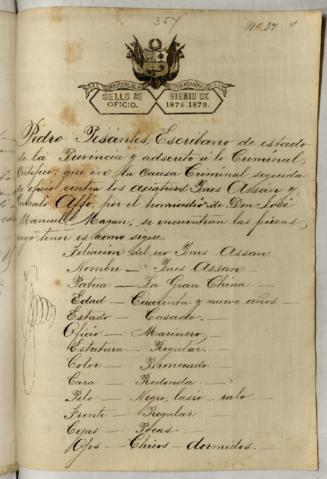 357
Nº 37
SELLO DE OFICIO.
BIENIO DE 1878 1879.
Pedro Pesantes, Escribano de estado
de la Provincia y adscrito á lo Criminal,
Certifico: que en la Causa Criminal seguida
de oficio contra los asiaticos Ines Assan y
por el homicidio de Don José
Manuel se encuentran las piezas
cuyo tenor es como sigue.
Filiacion del reo Ines Assan
Nombre — Ines Assan
Patria — La Gran China
Edad — Cuarenta y nueve años —
Estado — Casado.
Oficio — Marinero,
Estatura — Regular.
Color — Bronceado
Cara — Redonda.
Pelo — Negro, lasio - ralo
Frente — Regular
Cejas — Pocas
Ojos — Chicos - dormidos.